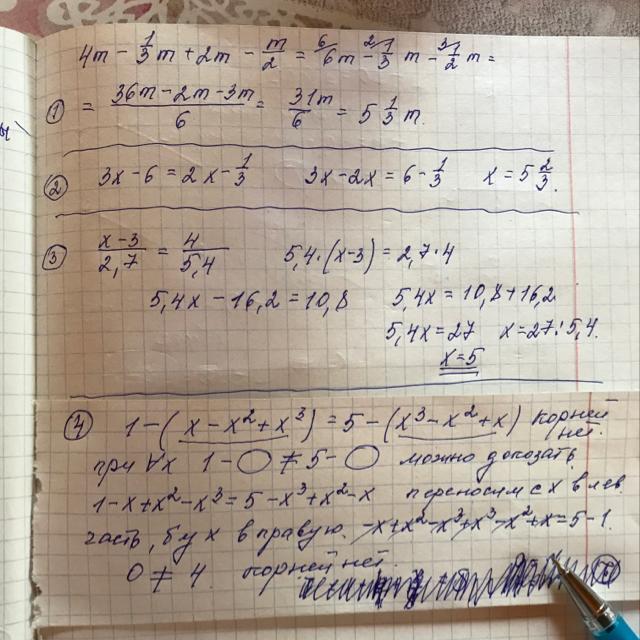 4m - 1/3 m + 2m - m/2 = 6/6m - 2/1/3 m - 3/1/2 m =
① = (36m - 2m - 3m)/6 = 31m/6 = 5 1/3 m.
② 3x - 6 = 2x - 1/3 3x - 2x = 6 - 1/3 x = 5 2/3.
③ (x-3)/2,7 = 4/5,4 5,4·(x-3) = 2,7·4
5,4x - 16,2 = 10,8 5,4x = 10,8 + 16,2
5,4x = 27 x = 27:5,4.
x = 5
④ 1 - (x - x² + x³) = 5 - (x³ - x² + x) корней нет.
при ∀x 1 - ◯ ≠ 5 - ◯ можно доказать,
1 - x + x² - x³ = 5 - x³ + x² - x переносим с x в лев.
часть, б у x в правую. -x + x² - x³ + x³ - x² + x = 5 - 1.
0 ≠ 4. корней нет.